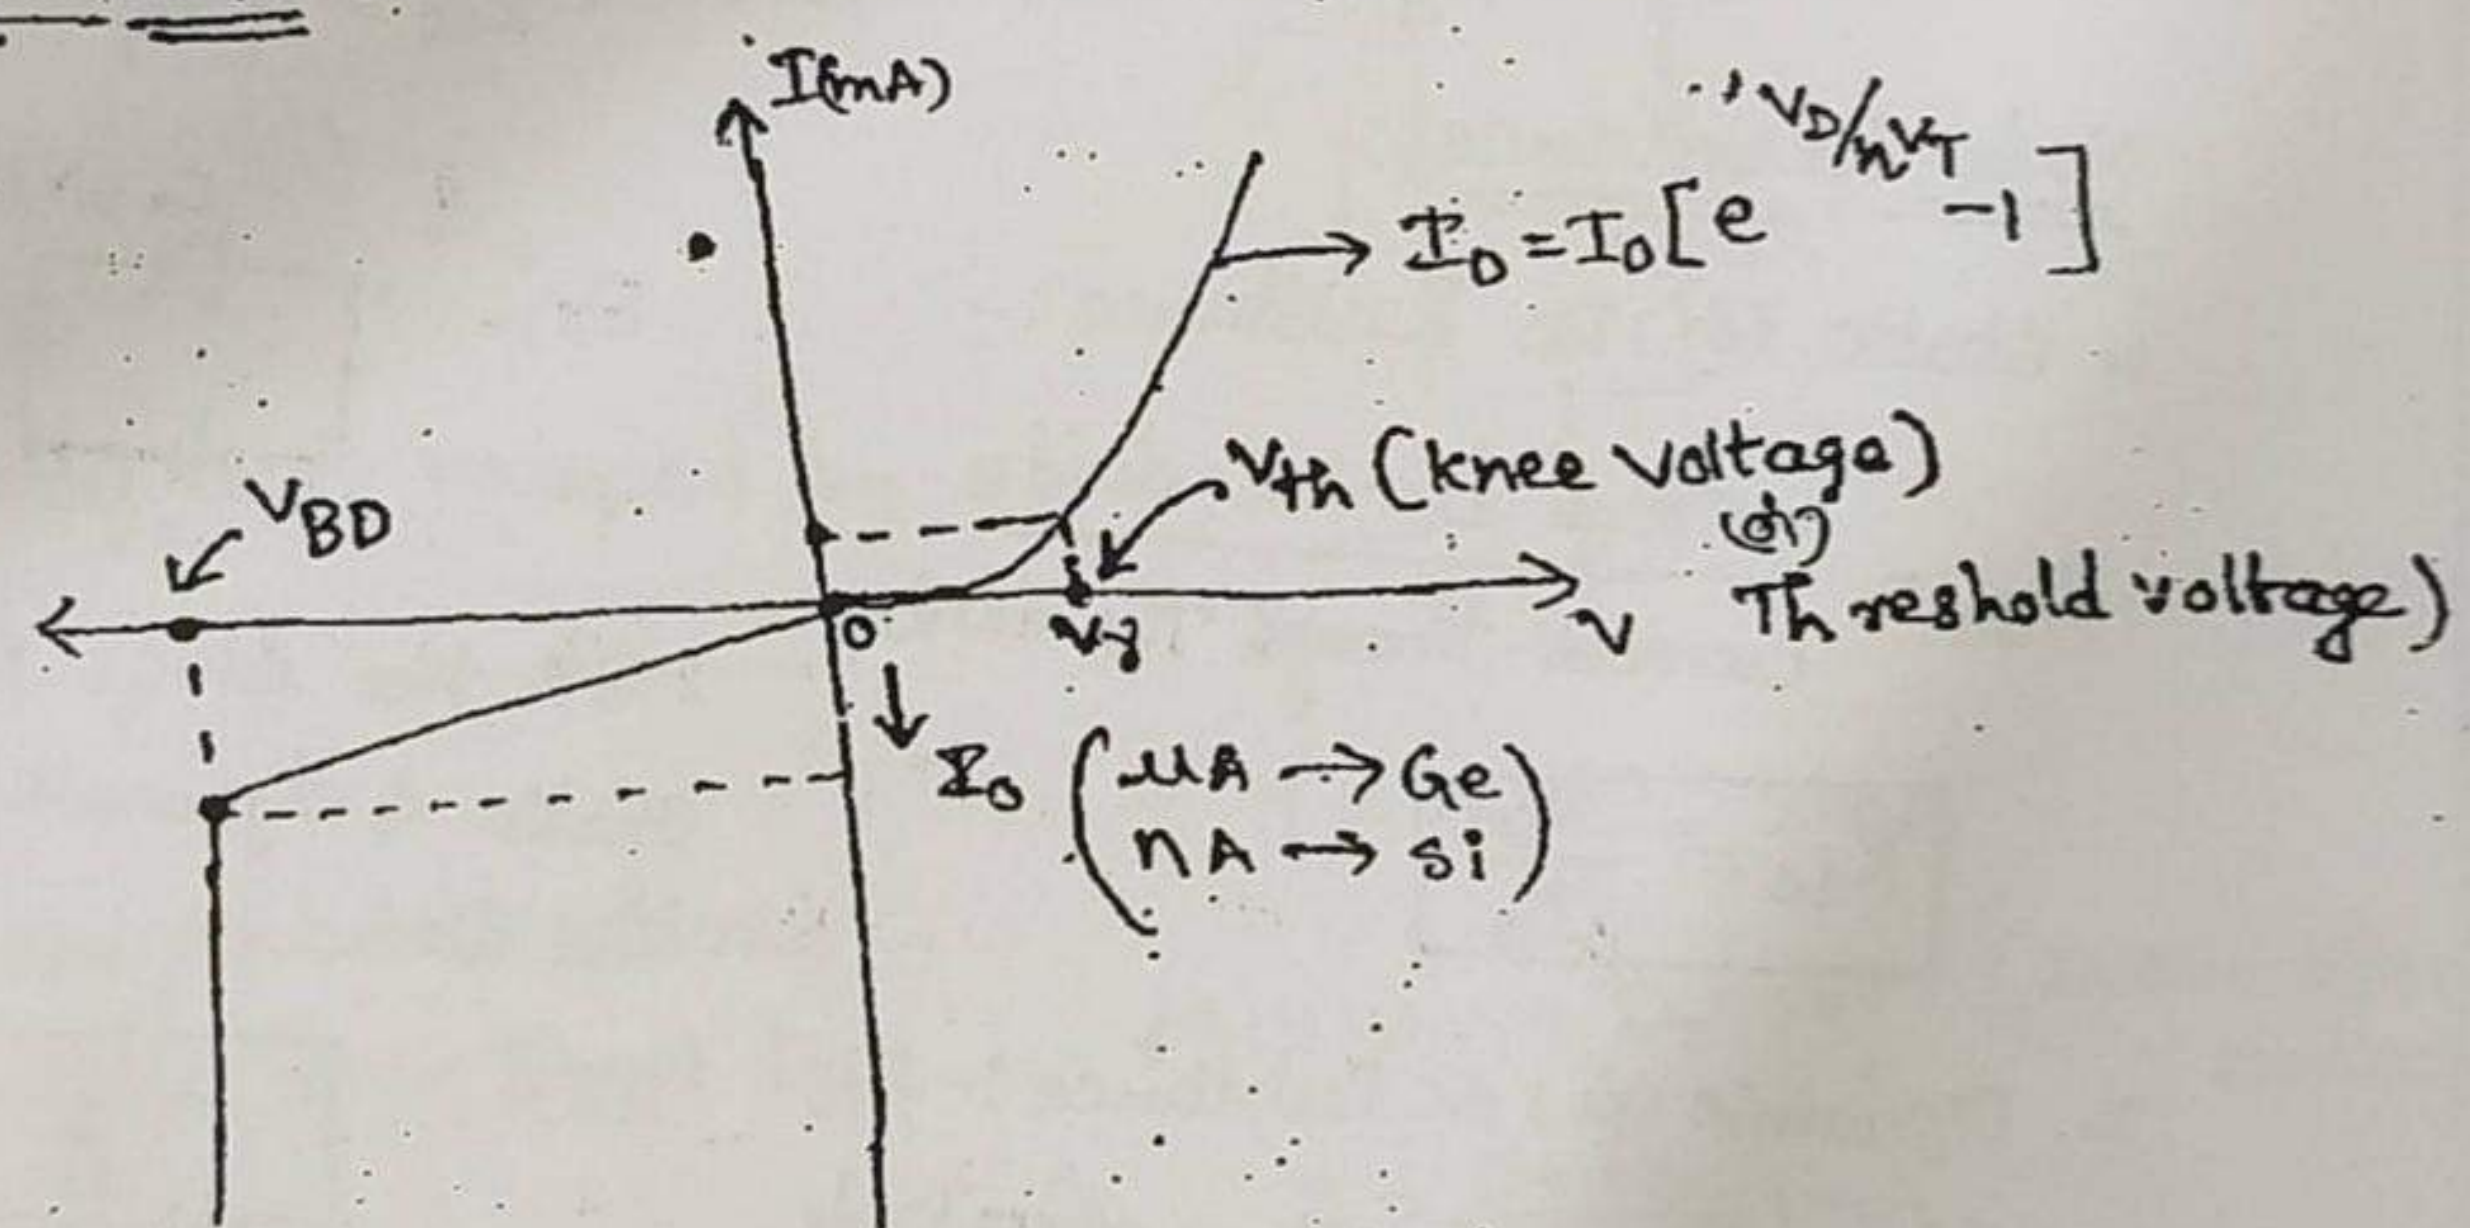 I(mA)
I_D = I_0 [e^{V_D/nV_T} -1]
V_th (knee voltage)
(or)
Threshold voltage)
V_BD
0
V_γ
V
I_0 (μA → Ge
nA → Si)